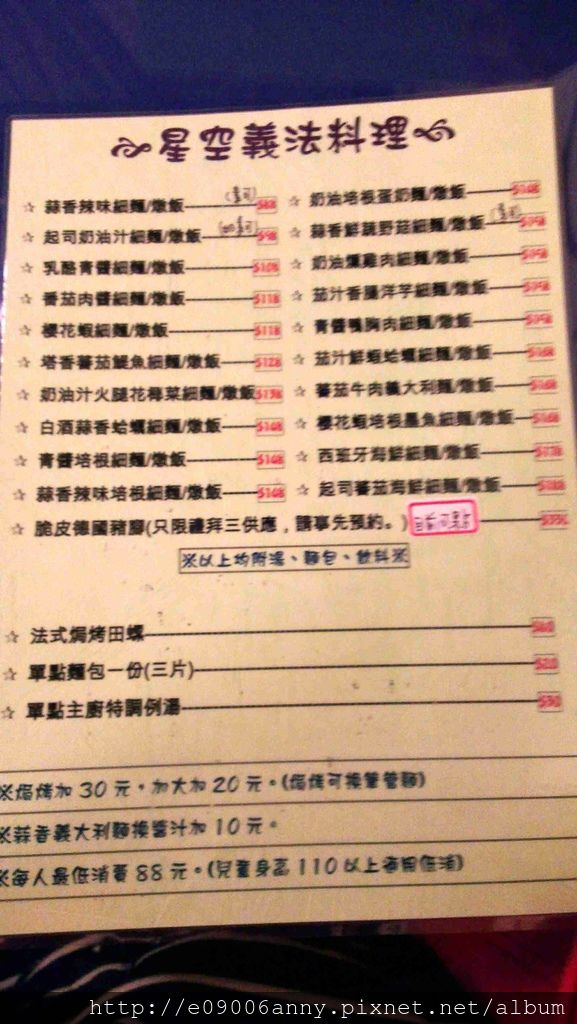 星空義法料理
☆ 蒜香辣味細麵/燉飯 (素可) $88
☆ 起司奶油汁細麵/燉飯 (奶素可) $98
☆ 乳酪青醬細麵/燉飯 $108
☆ 番茄肉醬細麵/燉飯 $118
☆ 櫻花蝦細麵/燉飯 $118
☆ 塔香蕃茄鯷魚細麵/燉飯 $128
☆ 奶油汁火腿花椰菜細麵/燉飯 $138
☆ 白酒蒜香蛤蠣細麵/燉飯 $148
☆ 青醬培根細麵/燉飯 $148
☆ 蒜香辣味培根細麵/燉飯 $148
☆ 奶油培根蛋奶麵/燉飯 $148
☆ 蒜香鮮蔬野菇細麵/燉飯 (素可) $158
☆ 奶油燻雞肉細麵/燉飯 $158
☆ 茄汁香腸洋芋細麵/燉飯 $158
☆ 青醬鴨胸肉細麵/燉飯 $158
☆ 茄汁鮮蝦蛤蠣細麵/燉飯 $168
☆ 蕃茄牛肉義大利麵/燉飯 $168
☆ 櫻花蝦培根墨魚細麵/燉飯 $168
☆ 西班牙海鮮細麵/燉飯
☆ 起司蕃茄海鮮細麵/燉飯 $188
☆ 脆皮德國豬腳(只限禮拜三供應，請事先預約。) 目前可點
※以上均附湯、麵包、飲料※
☆ 法式焗烤田螺 $60
☆ 單點麵包一份(三片) $20
☆ 單點主廚特調例湯 $30
※焗烤加 30 元。加大加 20 元。(焗烤可換筆管麵)
※蒜香義大利麵換醬汁加 10 元。
※每人最低消費 88 元。(兒童身高 110 以上適用低消)
http://e09006anny.pixnet.net/album